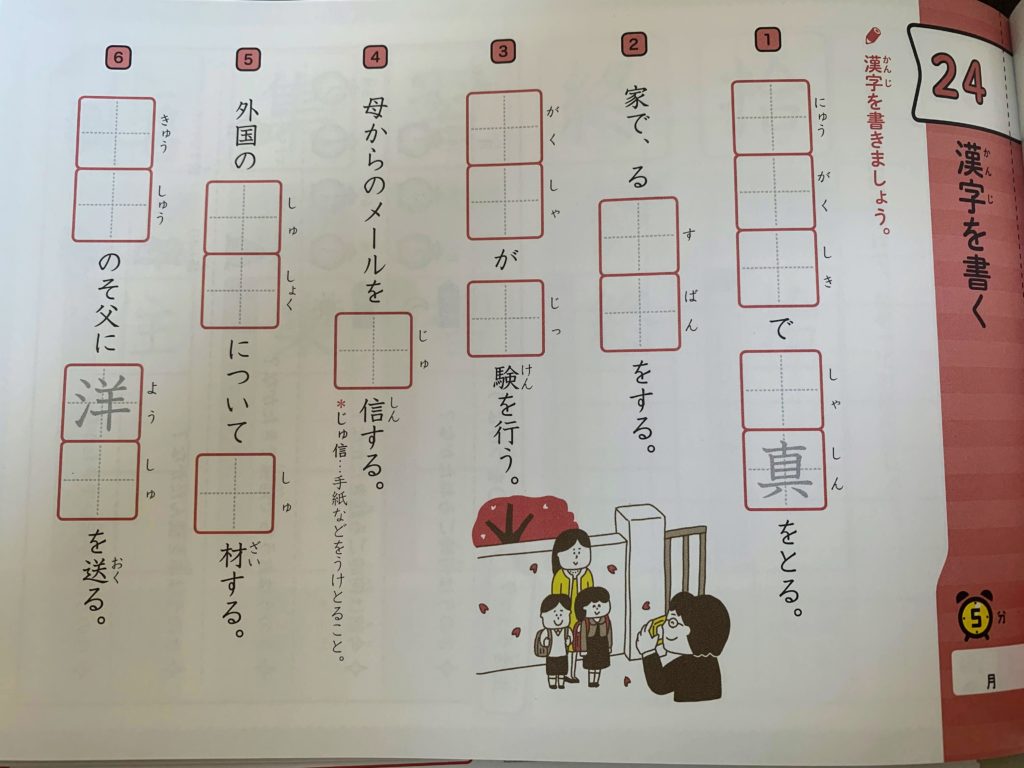 24
かんじ
漢字を書く
5分
月
かんじ
漢字を書きましょう。
1
にゅう がく しき
で
しゃ しん
真
をとる。
2
家で、る
す ばん
をする。
3
がく しゃ
が
じっ
けん
験を行う。
4
母からのメールを
じゅ
しん
信する。
*じゅ信…手紙などをうけとること。
5
外国の
しゅ しょく
について
しゅ
ざい
材する。
6
きゅう しゅう
のそ父に
よう しゅ
洋
おく
を送る。